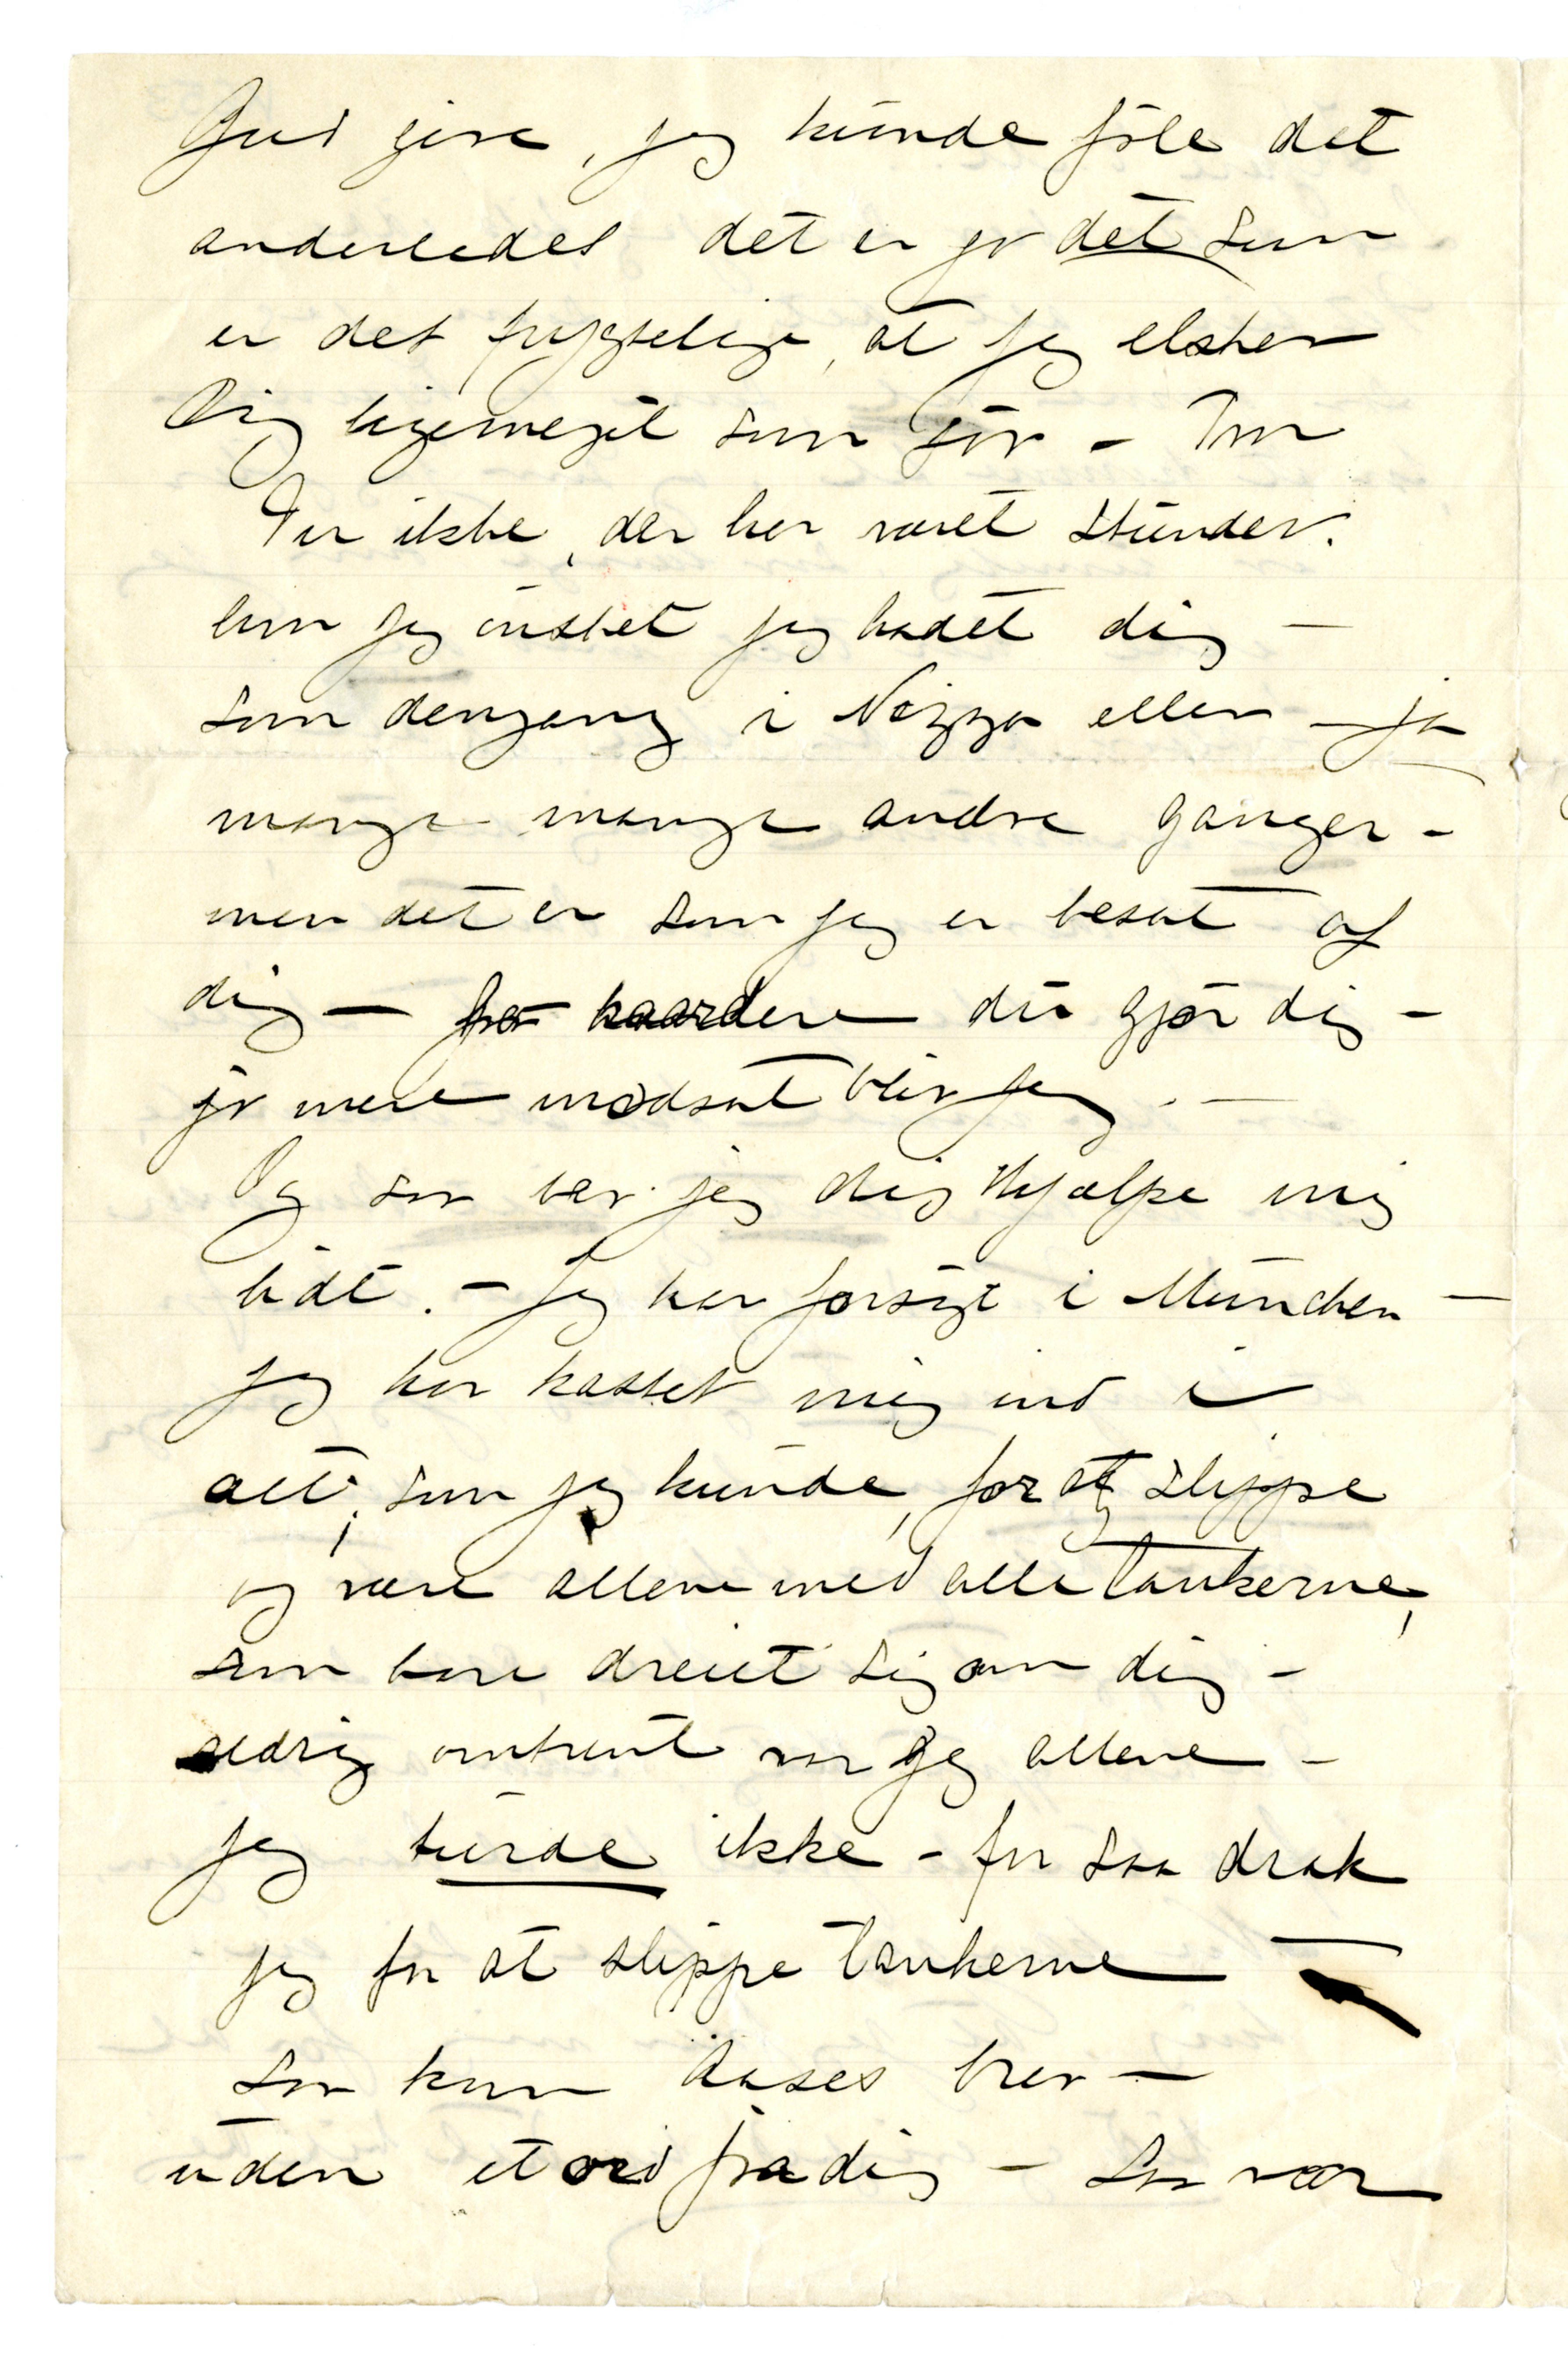 Gud give, jeg kunde føle det
anderledes det er jo det som
er det frygtelige, at jeg elsker
Dig ligemeget som før – Tro
Du ikke, der har været stunder.
hvor jeg ønsket jeg hadet dig –
som dengang i Nizza eller – ja
mange mange andre ganger –
men det er som jeg er besat af
dig – jo haardere du gjør dig –
jo mere modsat blir jeg. –
Og saa ber jeg dig hjælpe mig
lidt. – Jeg har forsøgt i München –
jeg har kastet mig ind i
alt, som jeg kunde, for at slippe
og være allene med alle tankerne,
som bare dreiet sig om dig –
aldrig omtrent var jeg allene –
jeg turde ikke – for saa drak
jeg for at slippe tankerne –
Saa kom Aases brev –
uden et ord fra dig – Saa var